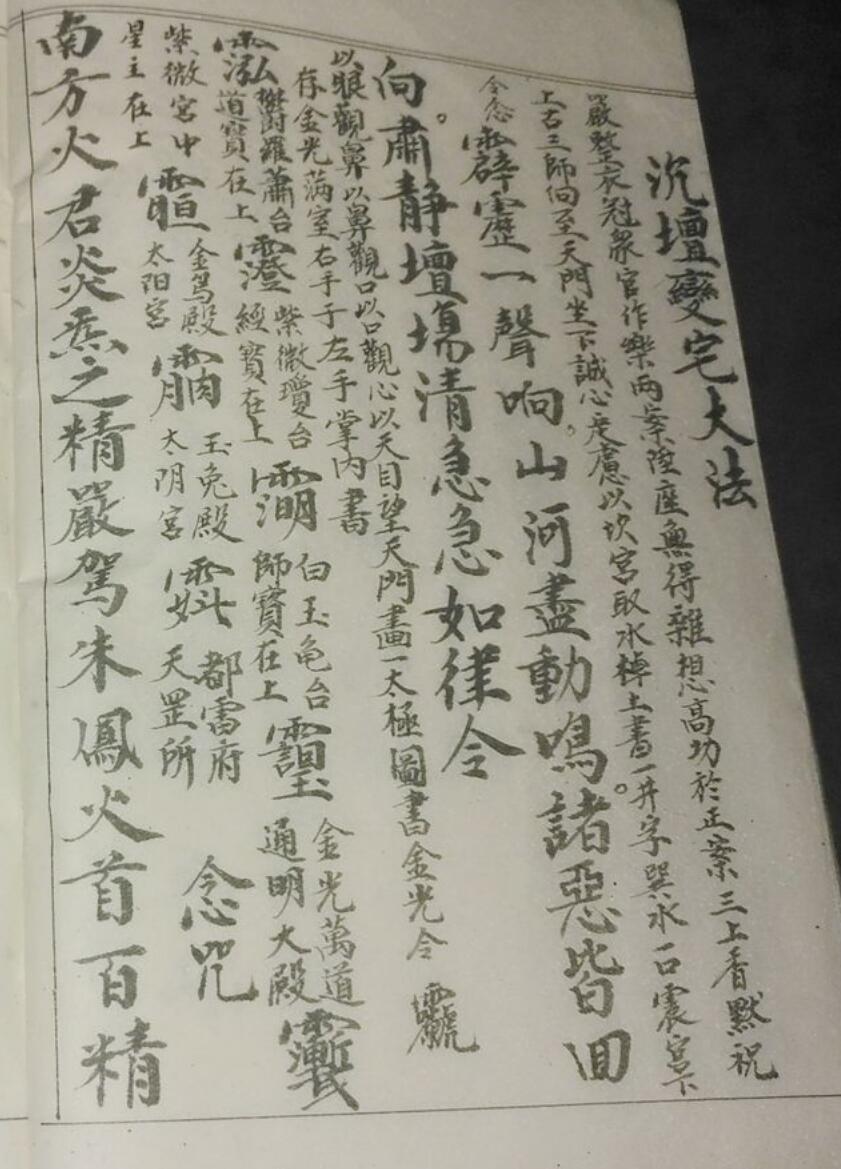 沉壇變宅大法
嚴整衣冠眾官作樂兩案陞座無得雜想高功於正案三上香默祝
上古三師伺至天門坐下誠心定慮以坎宮取水棹上書一井字巽水一口震宮下
令念霹靂一聲响。山河盡動鳴。諸惡皆回
向。肅靜壇塲清急急如律令
以眼觀鼻以鼻觀口以口觀心以天目望天門畫一太極圖書金光令
存金光滿室右手于左手掌內書
鬱羅蕭台道寶在上
紫微瓊台經寶在上
白玉龟台師寶在上
金光萬道通明大殿
紫微宮中星主在上
金烏殿太阳宮
玉兔殿太阴宮
都雷府天罡所
念咒
南方火君炎焘之精嚴駕朱鳳火首百精